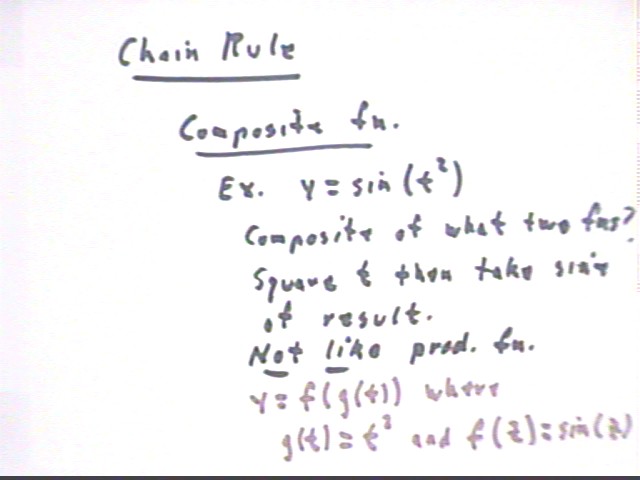 Chain Rule
Composite fn.
Ex. y = sin(t²)
Composite of what two fns?
Square t then take sine
of result.
Not like prod. fn.
y = f(g(t)) where
g(t) = t² and f(z) = sin(z)